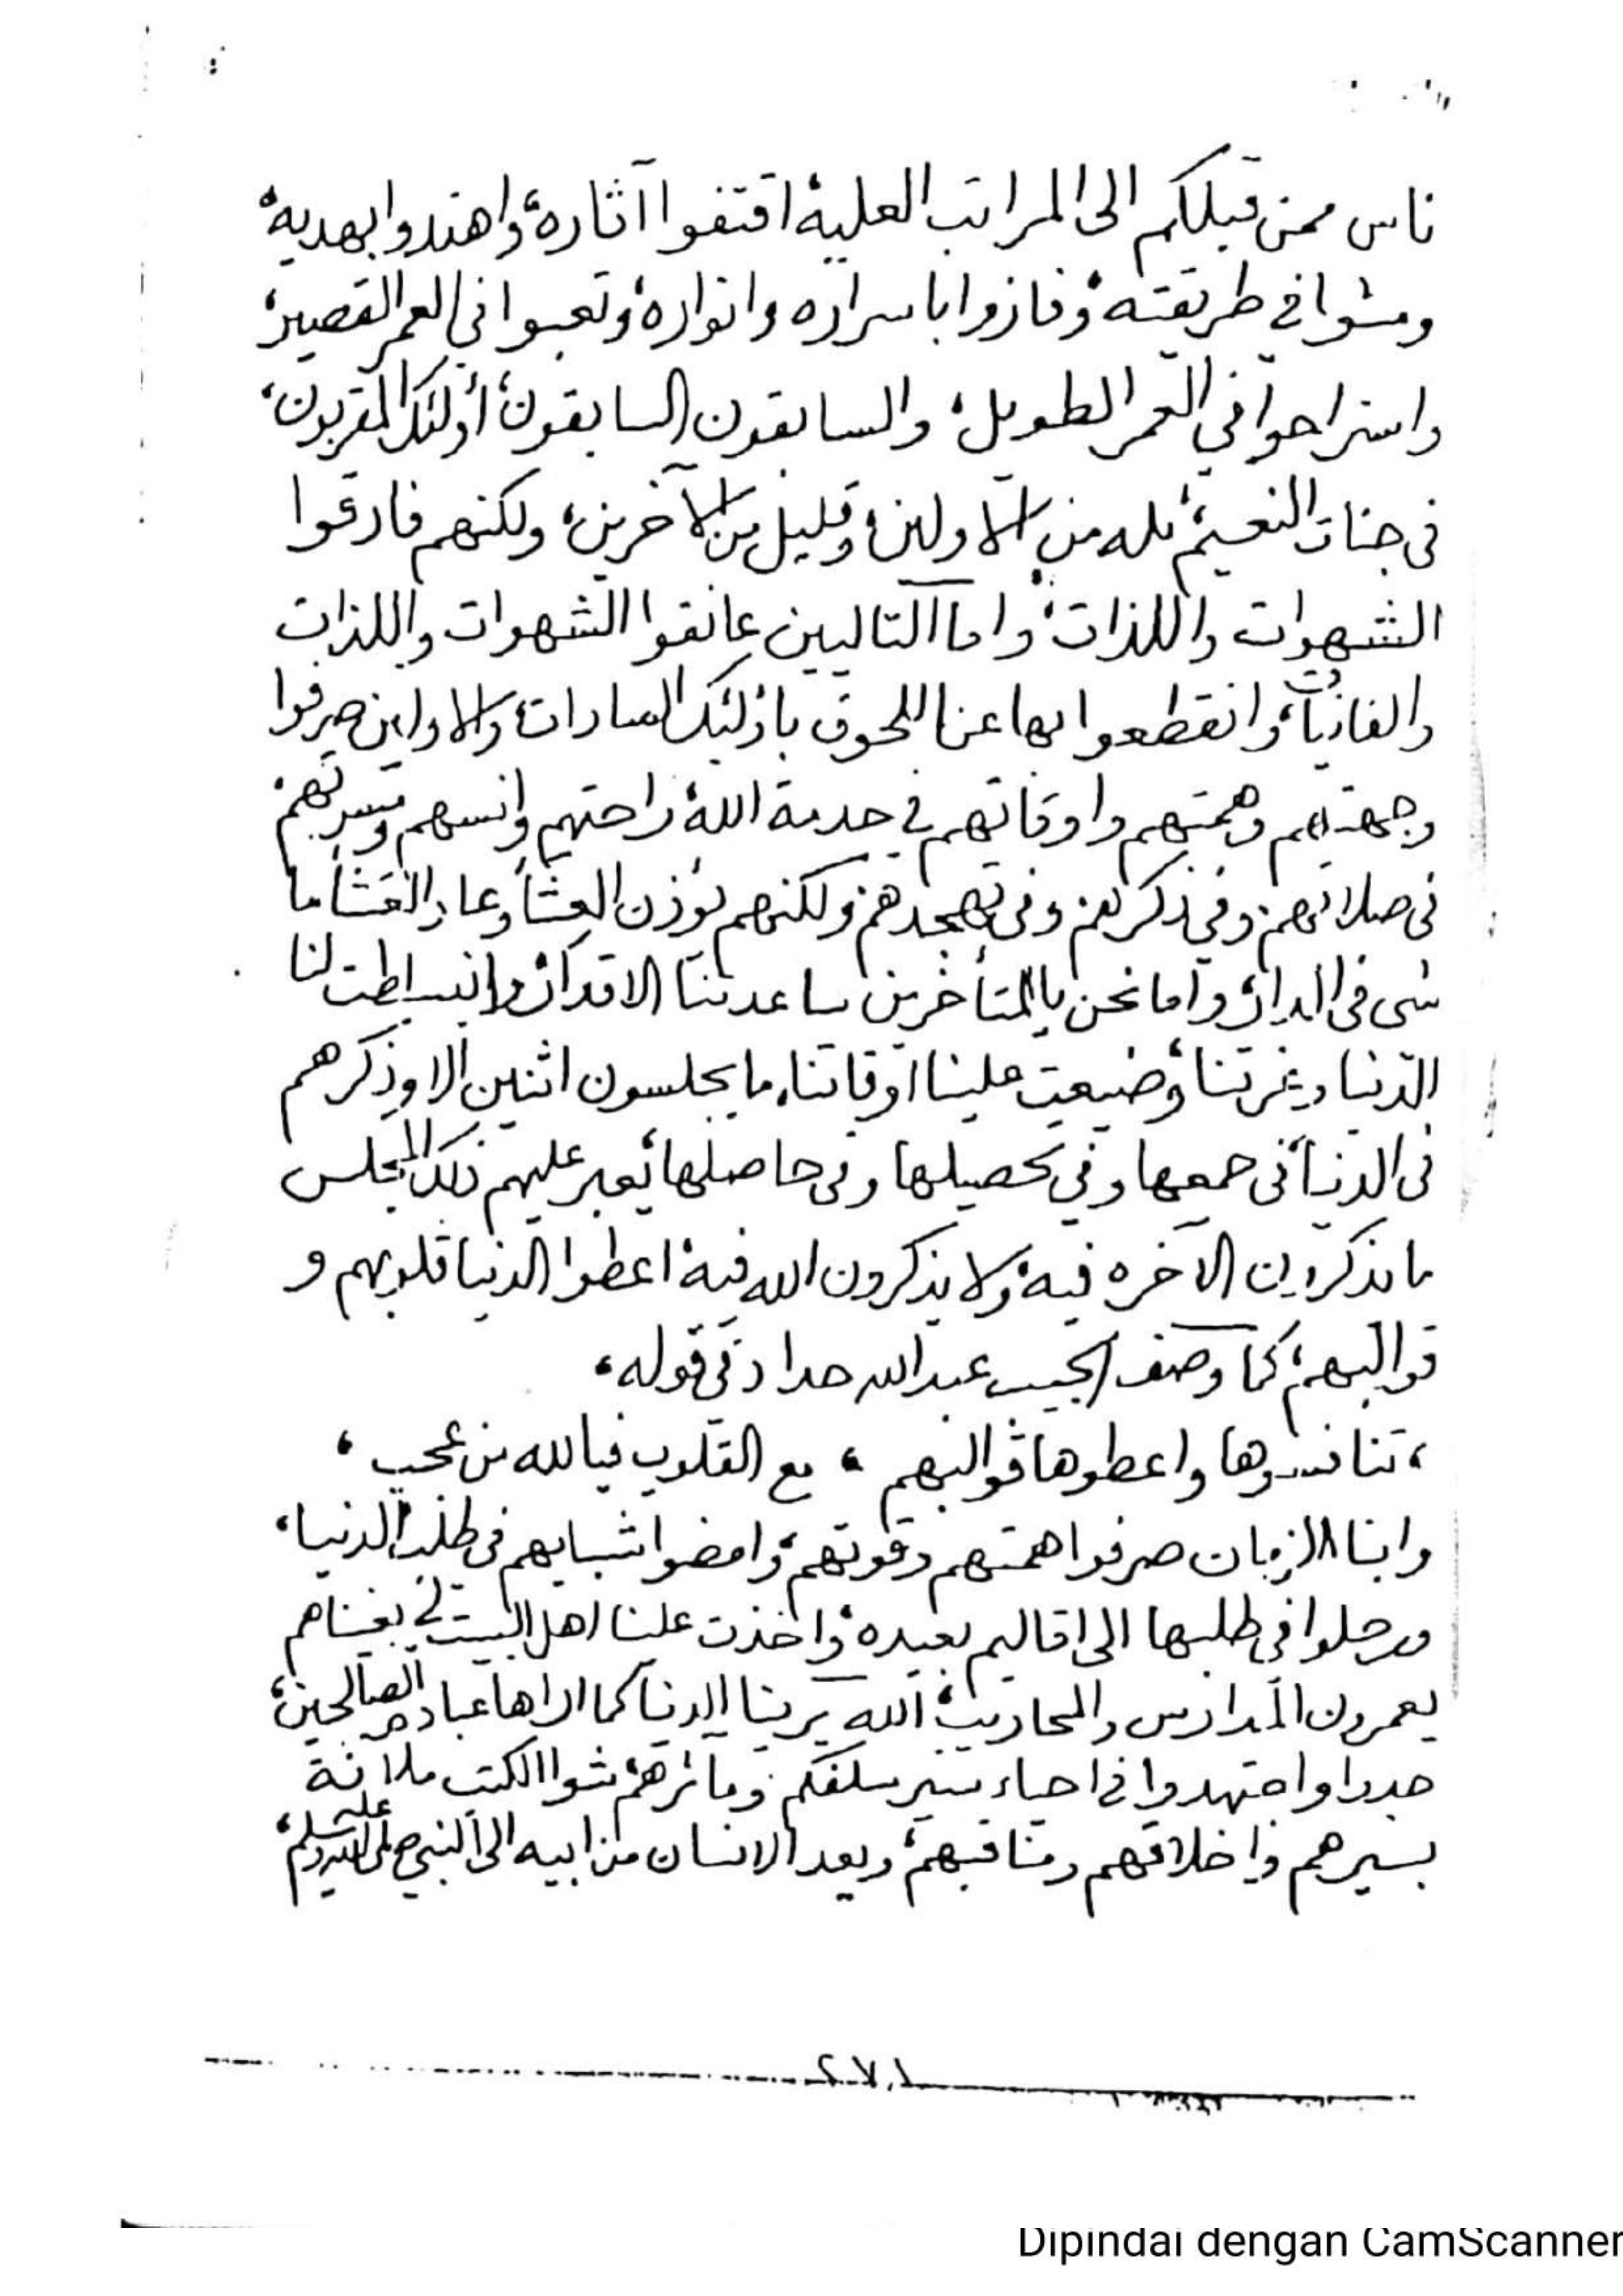 ناس ممن قبلكم الى المراتب العلية، اقتفوا آثاره، واهتدوا بهديه،
ومشوا في طريقته، وفازوا باسراره وانواره، وتعبوا في العمر القصير،
واستراحوا في العمر الطويل، والسابقون السابقون، أولئك المقربون،
في جنات النعيم، ثله من الاولين، وقليل من الآخرين، ولكنهم فارقوا
الشهوات واللذات، واما التاليين عانقوا الشهوات واللذات
والفانيات، وانقطعوا بها عن اللحوق باولئك السادات، والاولين صرفوا
وجهتهم وهمتهم واوقاتهم في خدمة الله، راحتهم وانسهم ومسرتهم،
في صلاتهم، وفي ذكرهم، وفي تهجدهم، ولكنهم يوذن العشاء وعاد العَشاء ما
شي في الدار، واما نحن يالمتأخرين ساعدتنا الاقدار، وانبسطت لنا
الدنيا وغرتنا، وضيعت علينا اوقاتنا، ما يجلسون اثنين الا وذكرهم
في الدنيا، في جمعها وفي تحصيلها وفي حاصلها، يعبر عليهم ذلك المجلس
ما يذكرون الآخره فيه، ولا يذكرون الله فيه، اعطوا الدنيا قلوبهم و
قوالبهم، كما وصف الحبيب عبد الله حداد في قوله،
، تنافسوها واعطوها قوالبهم ، مع القلوب فيا لله من عجب ،
وابناء الزمان صرفوا همتهم وقوتهم، وامضوا شبابهم في طلب الدنيا،
ورحلوا في طلبها الى اقاليم بعيده، واخذت علينا اهل البيت لي بغيناهم
يعمرون المدارس والمحاريب، الله يرينا الدنيا كما اراها عباده الصالحين،
جدوا واجتهدوا في احياء سير سلفكم ومآثرهم، شوا الكتب ملانة
بسيرهم واخلاقهم ومناقبهم، ويعد الانسان من ابيه الى النبي صلى الله عليه وسلم،
Dipindai dengan CamScanner